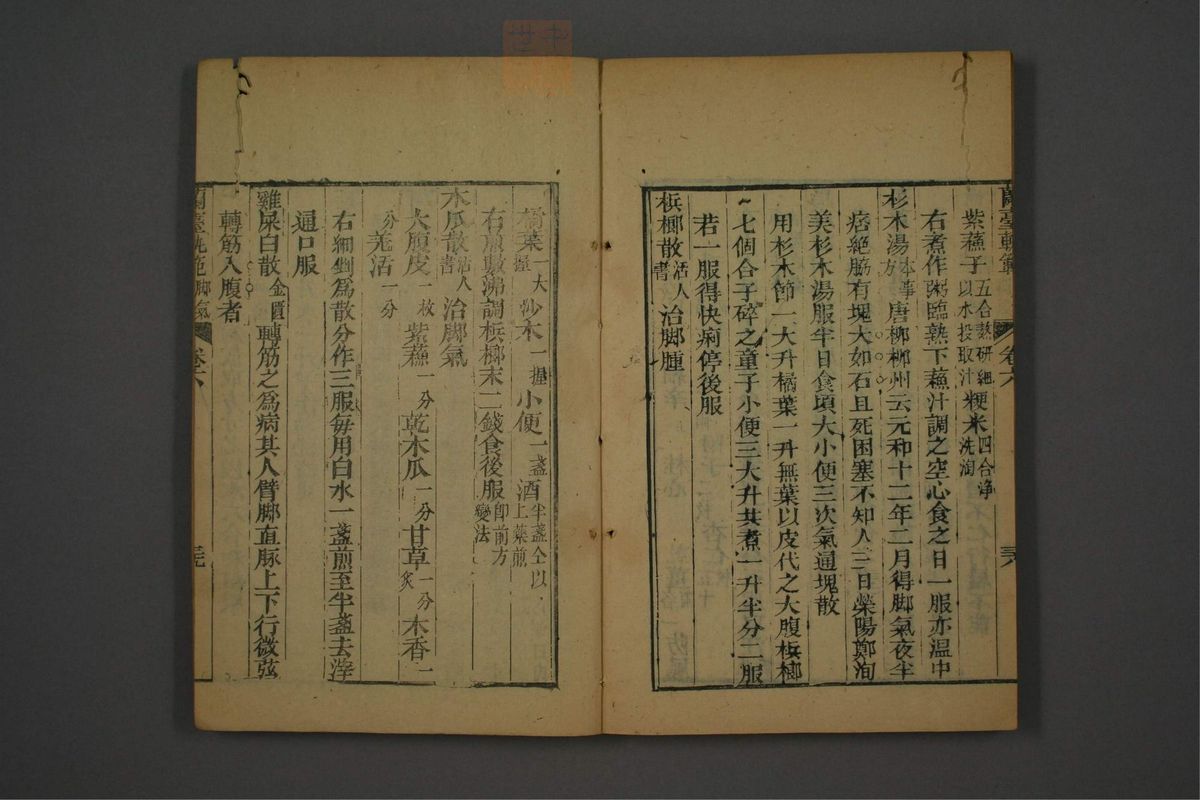 蘭臺軌範 卷六 三六
紫蘓子五合熬研細以水投取汁粳米四合淨洗淘
右煮作粥臨熟下蘓汁調之空心食之日一服亦温中
杉木湯本事方唐栁栁州云元和十二年二月得脚氣夜半
痞絶脇有塊大如石且死困塞不知人三日榮陽鄭洵
美杉木湯服半日食頃大小便三次氣通塊散
用杉木節一大升橘葉一升無葉以皮代之大腹梹榔
七個合子碎之童子小便三大升共煮一升半分二服
若一服得快痢停後服
梹榔散活人書治脚腫
橘葉一大握沙木一握小便一盞酒半盞仝以上藥煎
右煎數沸調梹榔末二錢食後服即前方變法
木瓜散活人書治脚氣
大腹皮一枚紫蘓一分乾木瓜一分甘草一分炙木香一
分羗活一分
右細剉爲散分作三服每用白水一盞煎至半盞去滓
通口服
雞屎白散金匱轉筋之爲病其人臂脚直脉上下行微弦
轉筋入腹者
蘭臺軌範 脚氣 卷六